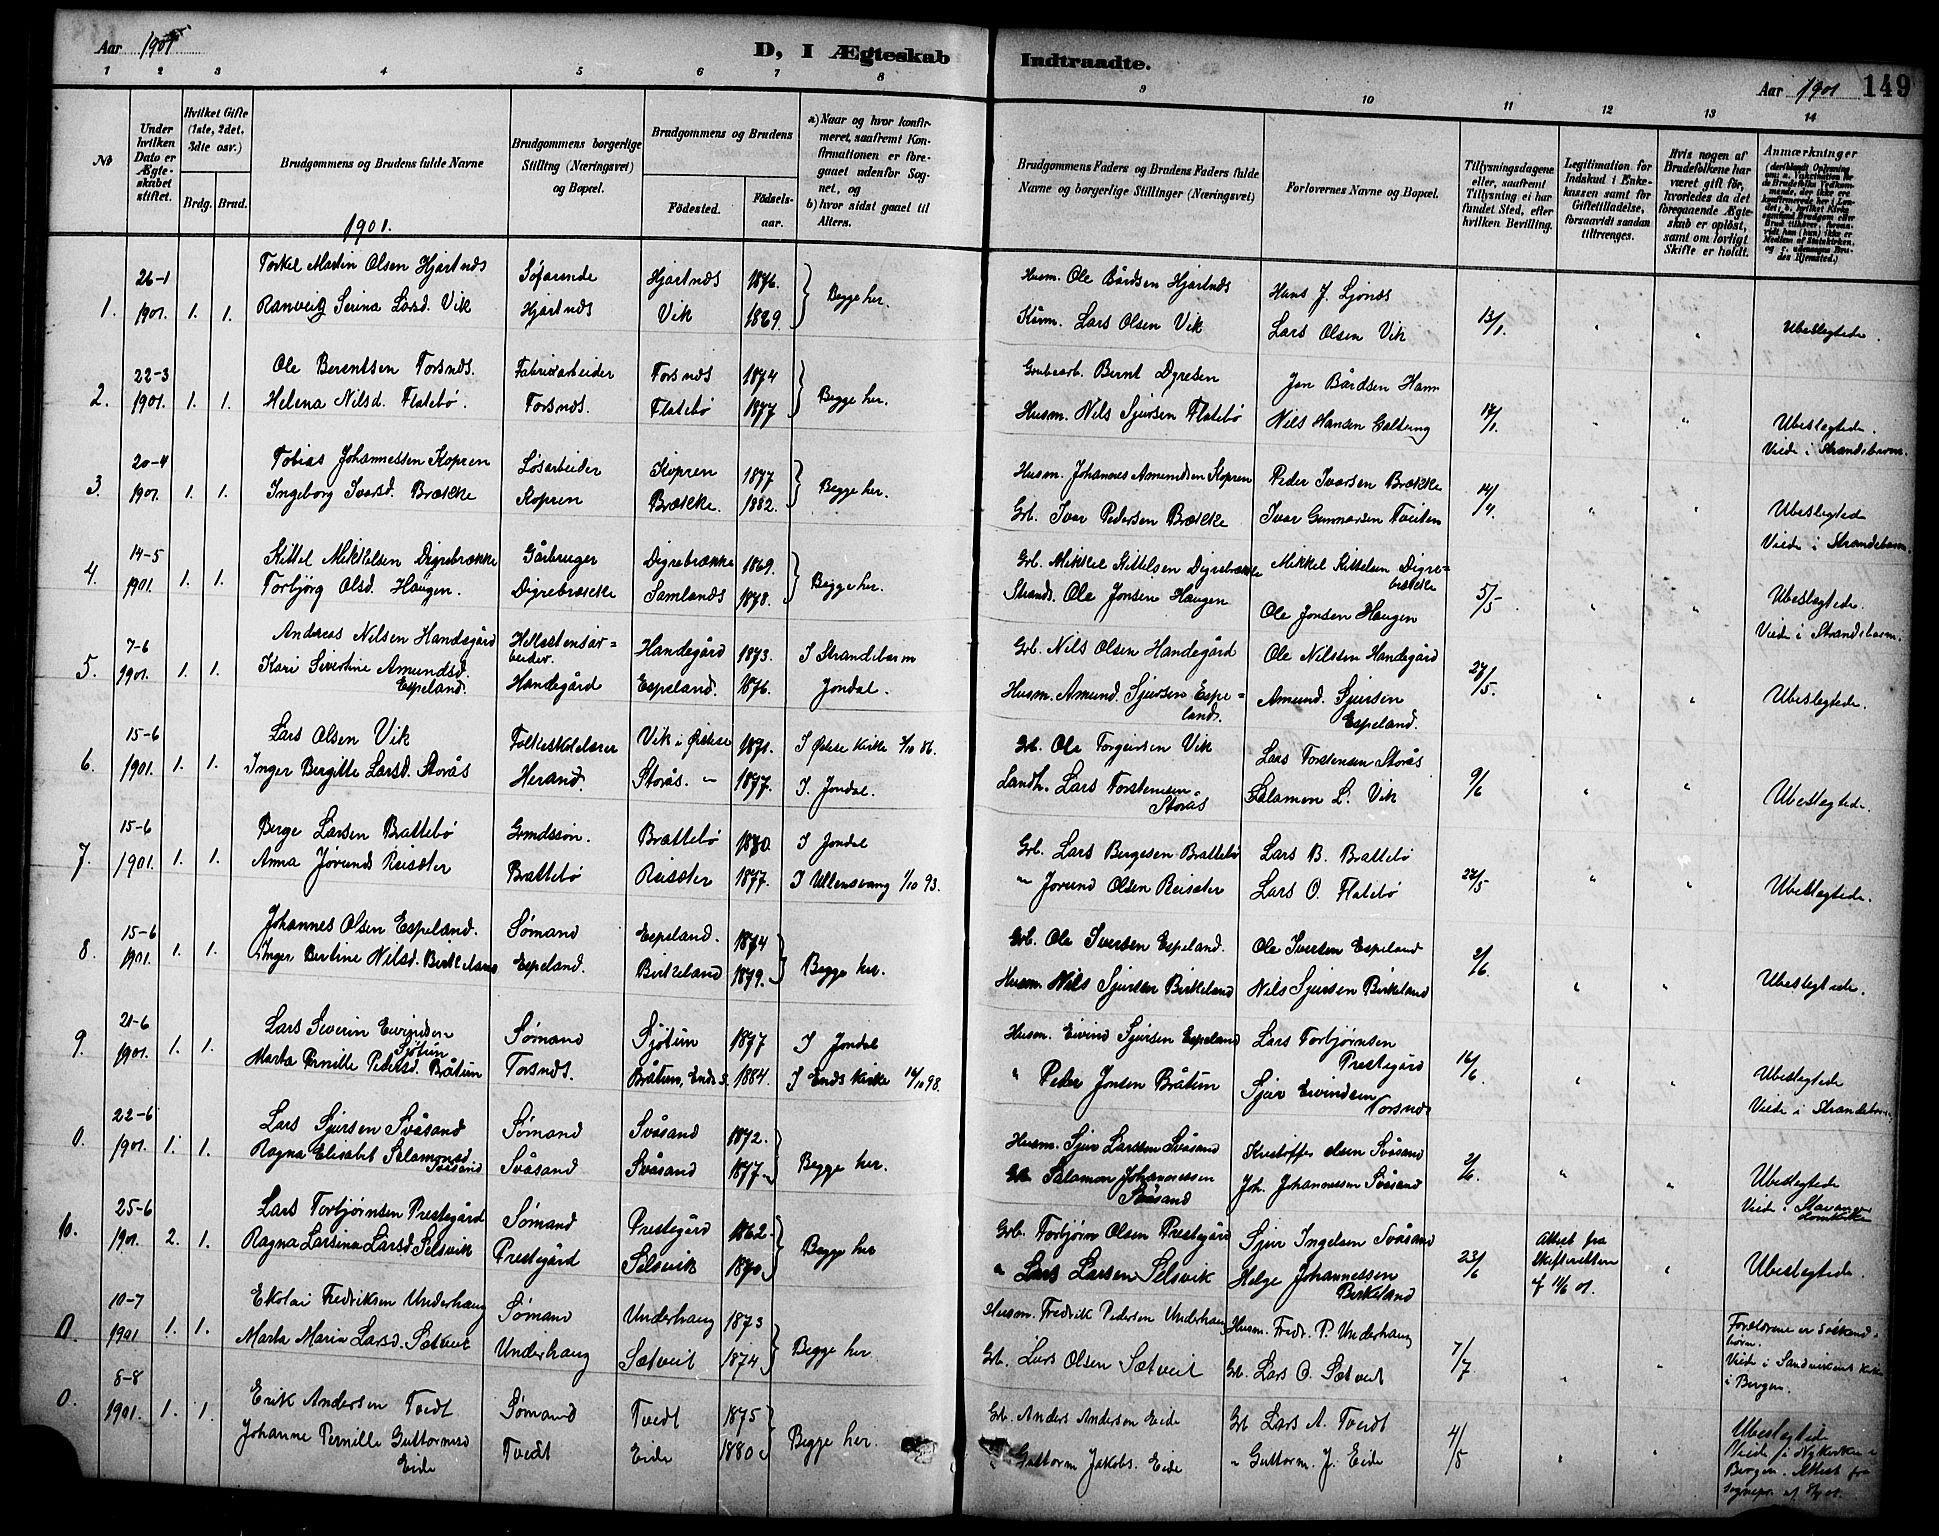 Aar 1901
D, I Ægteskab Indtraadte.
Aar 1901 149
1 2 3 4 5 6 7 8 9 10 11 12 13 14
No
Under hvilken Dato er Ægteskabet stiftet.
Hvilket Gifte (1ste, 2det, 3die osv.)
Brdg. Brud.
Brudgommens og Brudens fulde Navne
Brudgommens borgerlige Stilling (Næringsvei) og Bopæl.
Brudgommens og Brudens
Fødested. Fødsels-aar.
a) Naar og hvor konfirmeret, saafremt Konfirmationen er foregaaet udenfor Sognet, og
b) hvor sidst gaaet til Alters.
Brudgommens Faders og Brudens Faders fulde Navne og borgerlige Stillinger (Næringsvei)
Forlovernes Navne og Bopæl.
Tillysningsdagene eller, saafremt Tillysning ei har fundet Sted, efter hvilken Bevilling.
Legitimation for Indskud i Enkekassen samt for Giftetilladelse, forsaavidt saadan tiltrænges.
Hvis nogen af Brudefolkene har været gift før, hvorledes da det foregaaende Ægteskab er opløst, samt om lovligt Skifte er holdt.
Anmærkninger
1901.
1. 26-1 1901. 1. 1. Torkel Martin Olsen Hjartnes Søfarende Hjartnes 1876. Begge her. Husm. Ole Bårdsen Hjartnes Hans J. Ljones 13/1. " "
Ranveig Serina Larsd. Vik Hjartnes Vik 1869. Kårm. Lars Olsen Vik Lars Olsen Vik Ubeslegtede.
2. 22-3 1901. 1. 1. Ole Berentsen Torsnes. Fabrikarbeider Torsnes 1874 Begge her. Grubearb. Bernt Dyresen Jon Bårdsen Ham 17/1. " "
Helena Nilsd. Flatebø. Torsnes. Flatebø 1877 Husm. Nils Sjursen Flatebø Nils Hansen Galtung Ubeslegtede. Viede i Strandebarm.
3. 20-4 1901. 1. 1. Tobias Johannessen Kopren Løsarbeider Kopren 1877 Begge her. Husm. Johannes Amundsen Kopren Peder Ivarsen Brække 14/4. " "
Ingeborg Ivarsd. Brække Kopren Brække. 1882. Grb. Ivar Pedersen Brække Ivar Gunnarsen Tveiten Ubeslegtede Viede i Strandebarm.
4. 14-5 1901. 1. 1. Kittel Mikkelsen Digrebrække Gårbruger Digrebrække 1869. Begge her. Grb. Mikkel Kittelsen Digrebrække Mikkel Kittelsen Digrebrække 5/5 " "
Torbjørg Olsd. Haugen. Digrebrække Samlands 1878. Strands. Ole Jonsen Haugen Ole Jonsen Haugen Ubeslegtede. Viede i Strandebarm.
5. 7-6 1901. 1. 1. Andreas Nilsen Handegård Handegård 1873. I Strandebarm Grb. Nils Olsen Handegård Ole Nilssen Handegård 27/5. " "
Kari Sivertine Amundsd. Espeland. Handegård Espeland. 1876. Jondal. Husm. Amund Sjursen Espeland. Amund. Sjursen Espeland. Ubeslegtede.
6. 15-6 1901. 1. 1. Lars Olsen Vik Folkeskolelærer Vik i Østese 1871. I Østese Kirke 3/10 86. Grb. Ole Torgeirsen Vik Lars Torstensen Storås 9/6 " "
Inger Bergitte Larsd. Storås Herand. Storås. " 1877. I. Jondal. Landh. Lars Torstensen Storås Salamon L. Vik Ubeslegtede.
7. 15-6 1901. 1. 1. Berge Larsen Brattebø Grmdssøn. Brattebø 1880. I Jondal Grb. Lars Bergesen Brattebø Lars B. Brattebø 27/5 " "
Anna Jørunds Reisæter Brattebø Reisæter 1877. I Ullensvang 1/10 93. " Jørund Olsen Reisæter Lars O. Flatebø Ubeslegtede.
8. 15-6 1901. 1. 1. Johannes Olsen Espeland. Sømand Espeland. 1874 Begge her. Grb. Ole Iversen Espeland. Ole Iversen Espeland 2/6. " "
Inger Bertine Nilsd. Birkeland Espeland. Birkeland 1879. Husm. Nils Sjursen Birkeland Nils Sjursen Birkeland Ubeslegtede.
9. 21-6 1901. 1. 1. Lars Severin Eivindsen Sjøtun Sømand Sjøtun 1877 I Jondal Husm. Eivind Sjursen Espeland Lars Torbjørnsen Prestegård 16/6. " "
Marta Pernille Pedersd. Bråtun Torsnes. Bråtun, Ends. 1884. I Ends Kirke 14/10 98. " Peder Jonsen Bråtun Sjur Eivindsen Torsnes Ubeslegtede Viede i Strandebarm.
0. 22-6 1901. 1. 1. Lars Sjursen Svåsand Sømand Svåsand 1872. Begge her. Husm. Sjur Larssen Svåsand Kristoffer Olsen Svåsand 2/6. " "
Ragna Elisabet Salamonsd. Svåsand Svåsand Svåsand 1877. Grb. Salamon Johannessen Svåsand Joh. Johannessen Svåsand Ubeslegtede Viede i Stavanger Domkirke
25-6 1901. 2. 1. Lars Torbjørnsen Prestegård Sømand Prestegård 1862. Begge her Grb. Torbjørn Olsen Prestegård Sjur Ingelsen Svåsand 23/6 Attest fra Skifteretten af 11/6 01. "
Ragna Larsina Larsd. Selsvik Prestegård Selsvik 1870. " Lars Larsen Selsvik Helge Johannessen Birkeland Ubeslegtede.
0. 10-7 1901 1. 1. Ekolai Fredriksen Underhaug Sømand Underhaug 1873 Begge her. Husm. Fredrik Pedersen Underhaug Husm. Fredr. P. Underhaug 7/7 " "
Marta Maria Larsd. Sætveit Underhaug Sætveit 1874 Grb. Lars Olsen Sætveit Grb. Lars O. Sætveit Forældrene er Søskendebørn. Viede i Sandvikens Kirke i Bergen.
0. 8-8 1901. 1. 1. Erik Andersen Tvedt Sømand Tvedt 1875 Begge her. Grb. Anders Andersen Eide Grb. Lars A. Tvedt 4/5 " "
Johanne Pernille Guttormsd. Eide Tvedt Eide 1880 " Guttorm Jakobs. Eide " Guttorm. J. Eide Ubeslegtede Viede i Nykirken i Bergen. Attest fra Sognepr. af